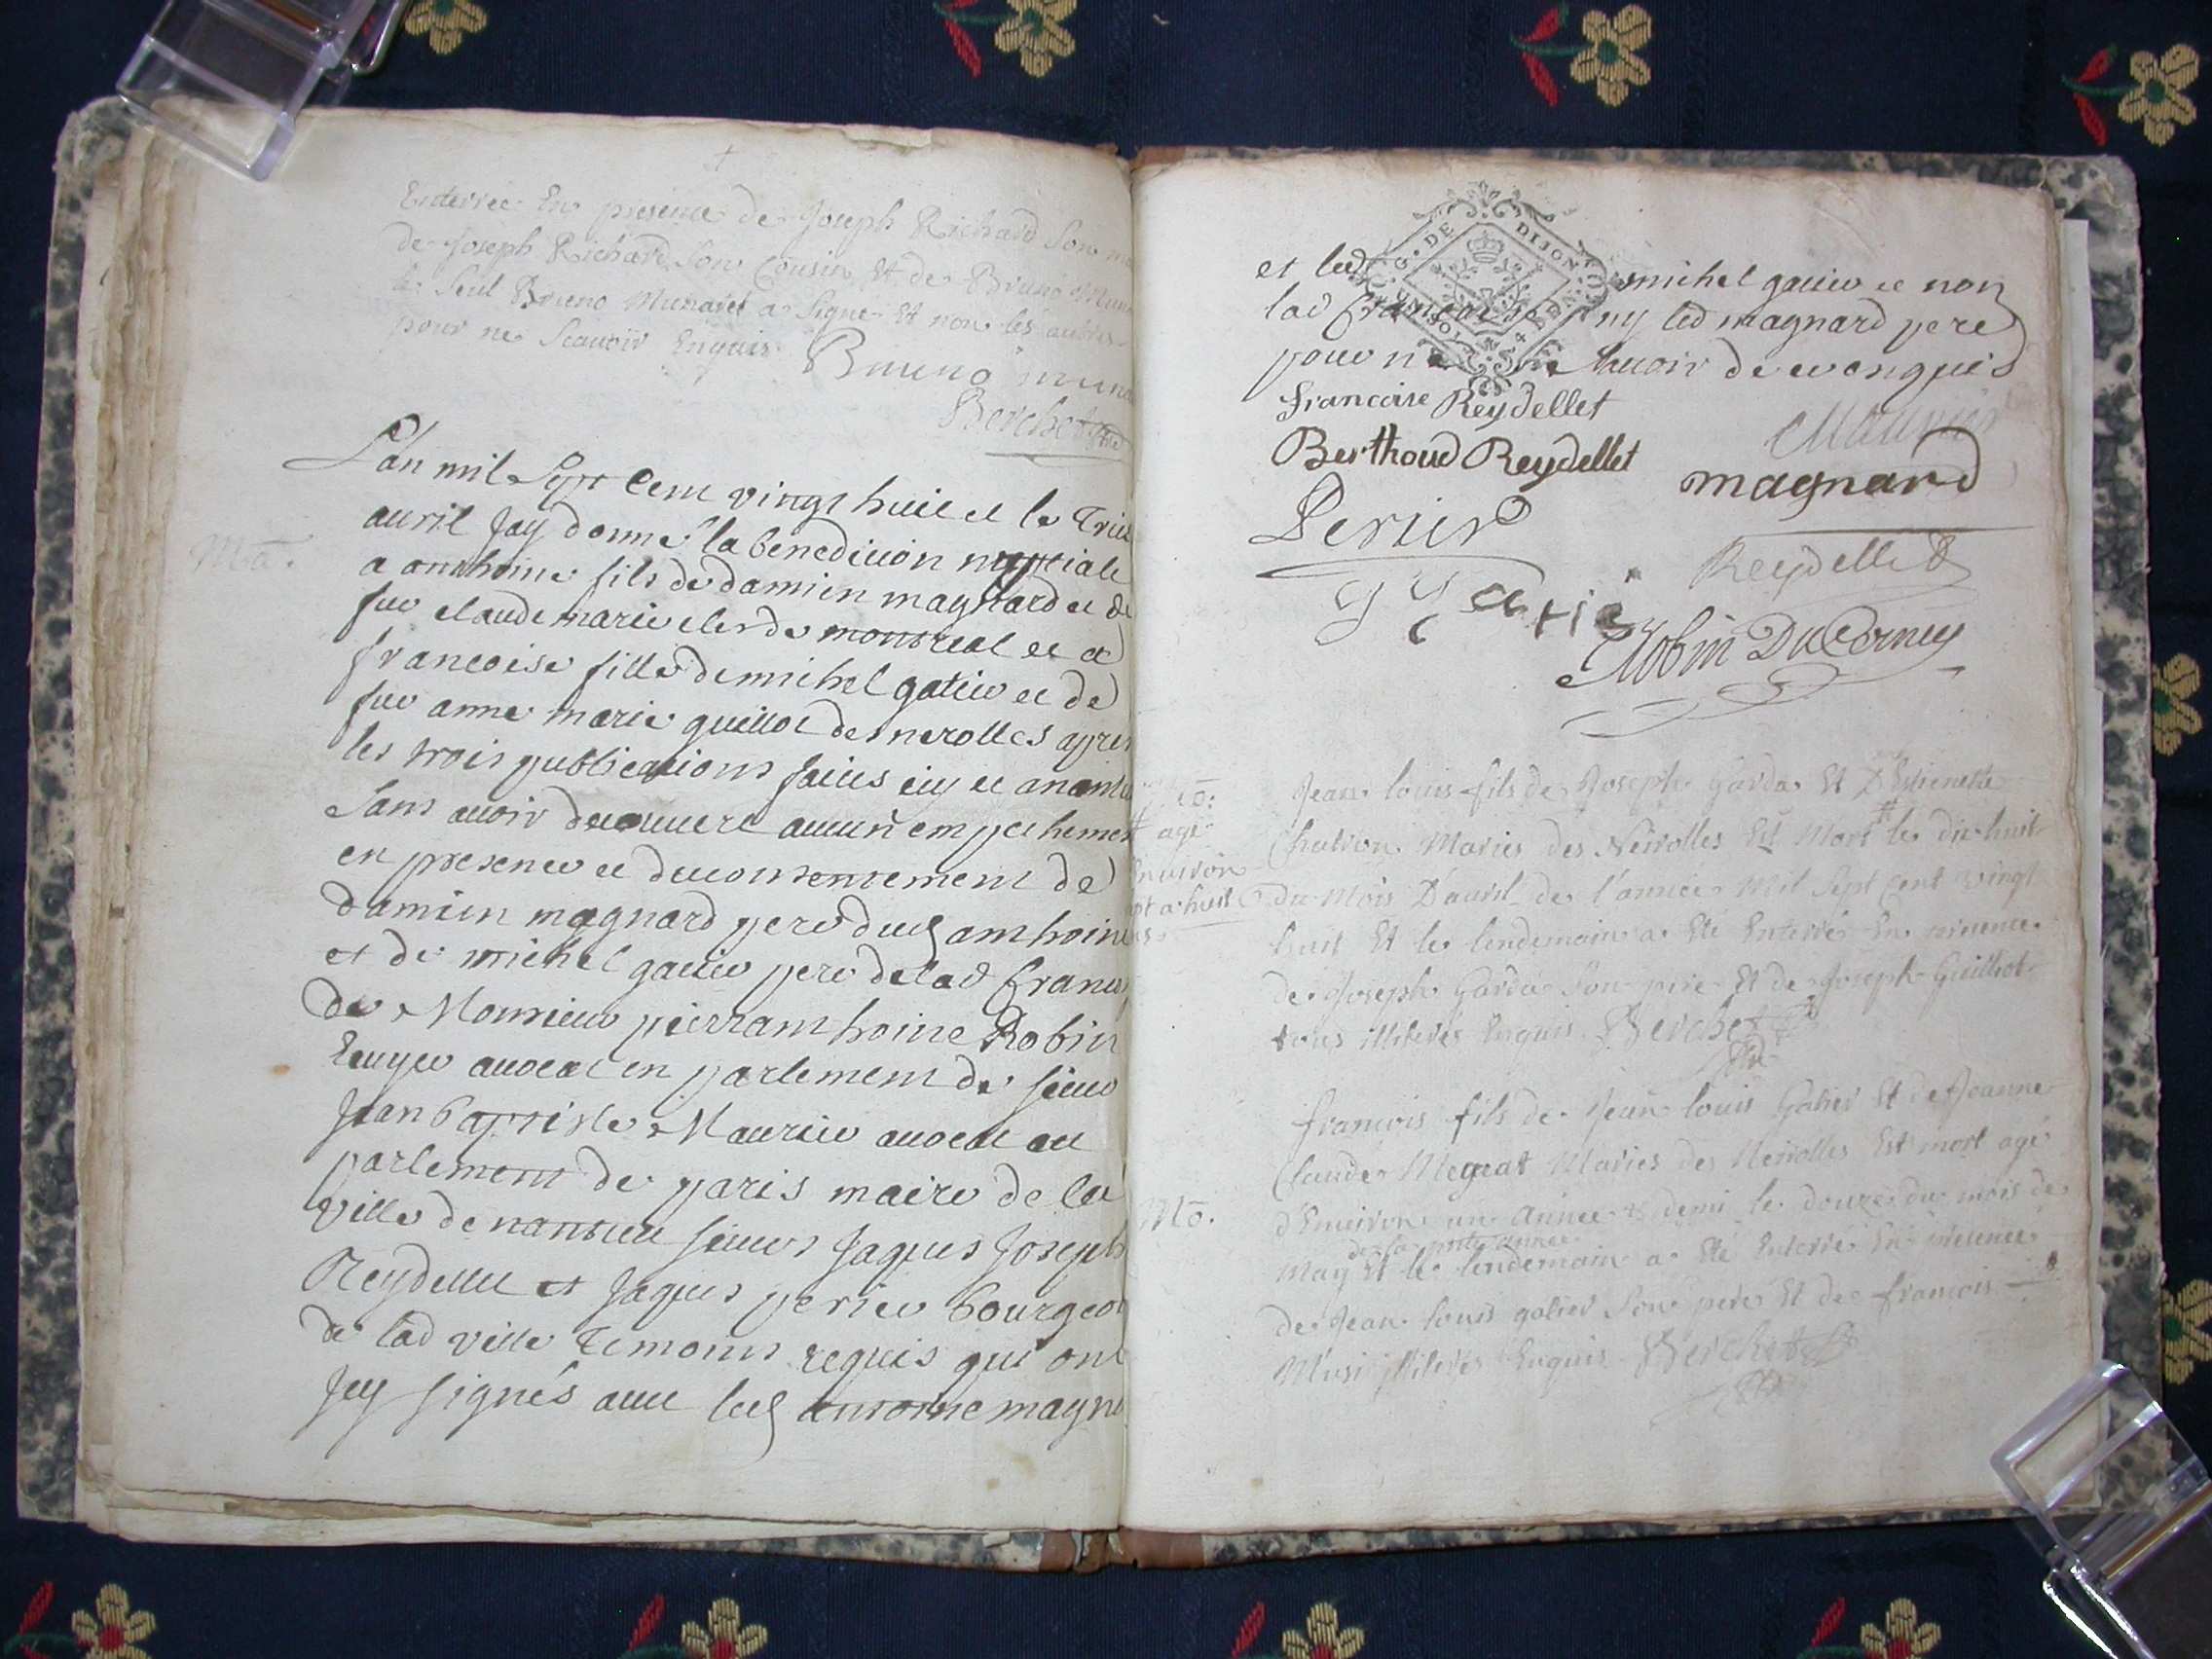 Enterrée En presence de Joseph Richard Son
de Joseph Richard Son Cousin Et de Bruno
le Seul Bruno Munaret a Signé Et non les autres
pour ne Scauoir Enquis
Bruno muna
Berchet
Lan mil Sept Cent vingt huit et le
auril Jay donné la benediction nuptiale
Ma.
a anthoine fils de damien magnard et de
feu claude marie clerdo montreal et a
francoise fille de michel gatier et de
feu anne marie guillot des nerolles apres
les trois publications faites icy et a
Sans auoir decouuert aucun empechement
en presence et du consentement de
damien magnard pere dud anthoine
et de michel gatier pere de lad
de Monsieur pierranthoine Robin
Ecuyer auocat en parlement de sieur
Jean baptiste Maurier auocat au
parlement de paris maire de la
ville de nantua sieurs Jaques Joseph
Reydellet et Jaques perier bourgeois
de lad ville temoins requis qui ont
Jcy signés auec led antoine magn
G. DE DIJON
et led michel gatier et non
lad francoise ny led magnard pere
pour ne Scauoir de ce enquis
francoise Reydellet
Maurier
Berthoud Reydellet
magnard
Perier
Reydellet
Robin DuCerney
Jean louis fils de Joseph Garda Et D'Estiennette
agé
Chatron Mariés des Neirolles Est Mort # le dix huit
Enuiron
sept a huit
du Mois D'auril de l'année Mil Sept Cent vingt
huit Et le lendemain a Eté Enterré En presence
de Joseph Garda Son pere Et de Joseph Guilliot
tous illiterés Enquis Berchet
francois fils de Jean louis Galier Et de Jeanne
Claude Megeat Mariés des Neirolles Est mort agé
Mo.
d'Enuiron une année & demi le douze du mois de
de la
May Et le lendemain a Eté Enterré En presence
de Jean louis galier Son pere Et de francois
illiterés Enquis Berchet